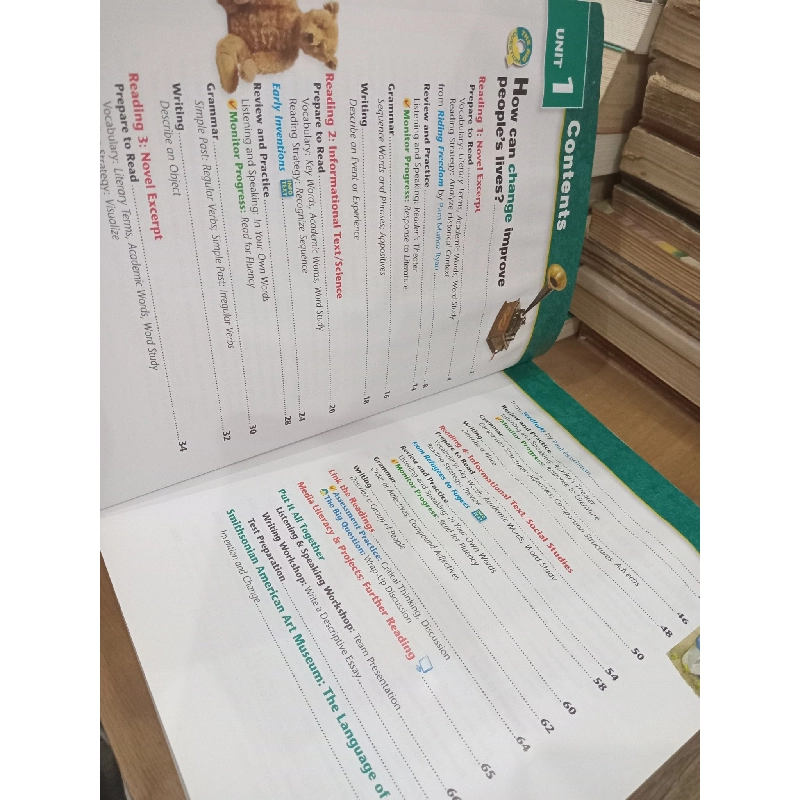 UNIT 1
Contents
THE BIG QUESTION
How can change improve
people's lives?
Reading 1: Novel Excerpt
Prepare to Read
Vocabulary: Literary Terms, Academic Words, Word Study
Reading Strategy: Analyze Historical Context
from Riding Freedom by Pam Muñoz Ryan 4
Review and Practice 8
Listening and Speaking: Reader's Theater
Monitor Progress: Response to Literature 14
Grammar 16
Sequence Words and Phrases, Appositives
Writing 18
Describe an Event or Experience
Reading 2: Informational Text/Science
Prepare to Read 20
Vocabulary: Key Words, Academic Words, Word Study
Reading Strategy: Recognize Sequence 24
Early Inventions INFO TEXT 28
Review and Practice
Listening and Speaking: In Your Own Words
Monitor Progress: Read for Fluency 30
Grammar 32
Simple Past: Regular Verbs, Simple Past: Irregular Verbs
Writing 34
Describe an Object
Reading 3: Novel Excerpt
Prepare to Read
Vocabulary: Literary Terms, Academic Words, Word Study
Strategy: Visualize
Review and Practice
Grammar
46
Writing 48
Reading 4: Informational Text, Social Studies
Prepare to Read 50
Vocabulary: Key Words, Academic Words, Word Study
from Refugees to 54
Review and Practice 58
Listening and Speaking: In Your Own Words
Monitor Progress: Read for Fluency
Grammar 60
Writing 62
Describe a Group of People
Link the Readings 64
Assessment Practice: Critical Thinking, Discussion
The Big Question: Wrap-Up Discussion
Media Literacy & Projects; Further Reading 65
Put It All Together
Listening & Speaking Workshop: Team Presentation
Writing Workshop: Write a Descriptive Essay
Test Preparation
Smithsonian American Art Museum: The Language of
Invention and Change